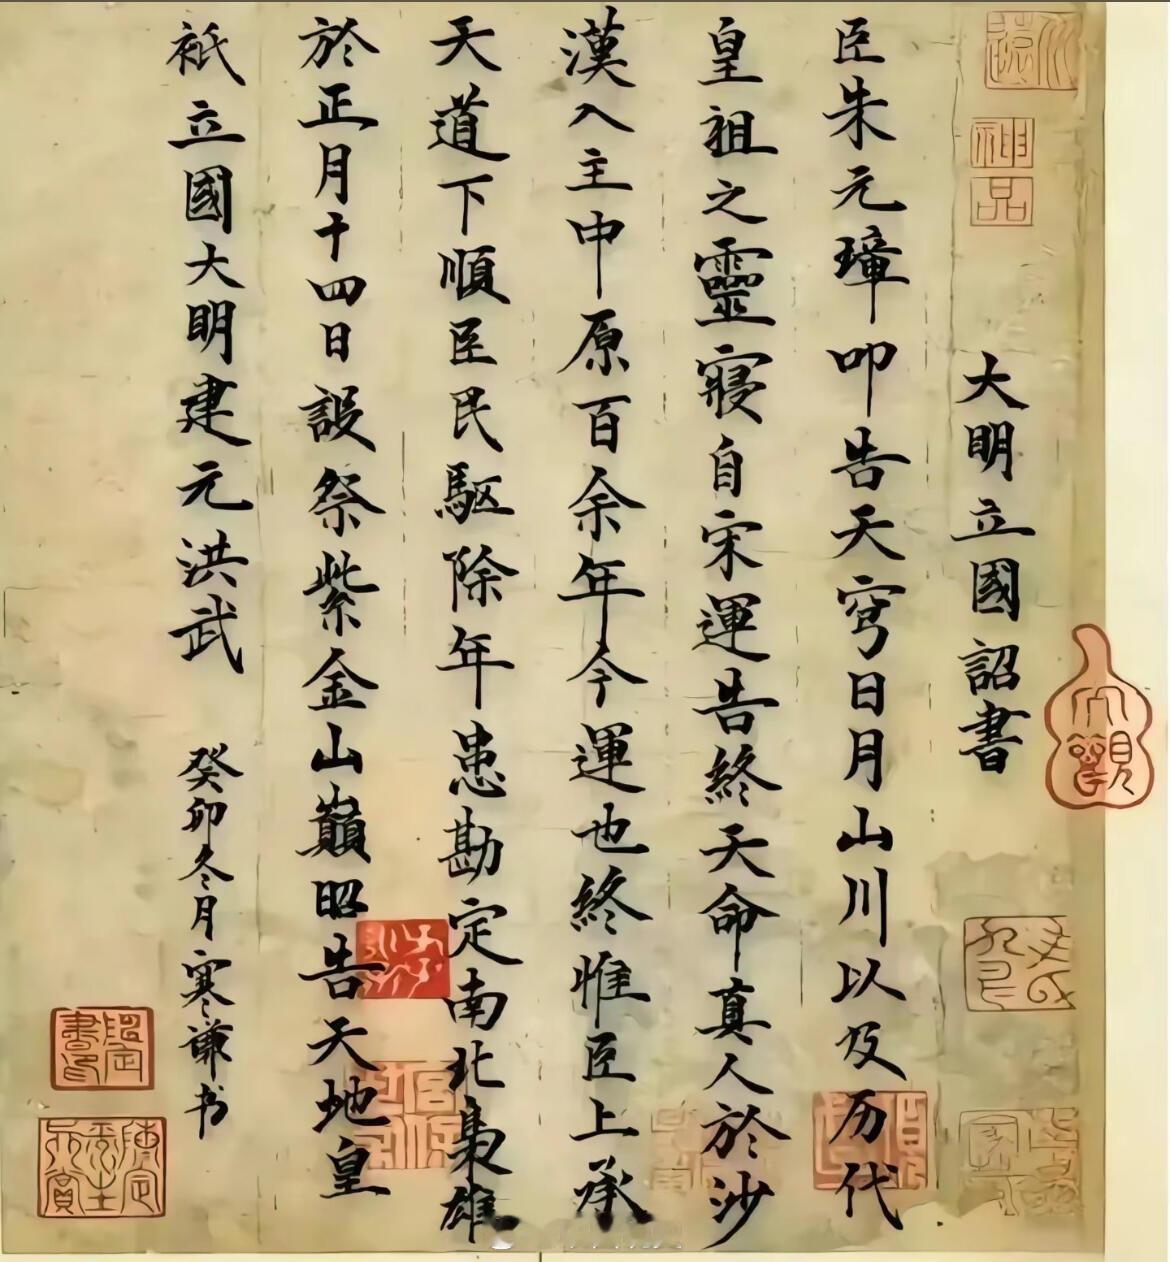 大明立國詔書
臣朱元璋叩告天穹日月山川以及历代
皇祖之靈寢自宋運告終天命真人於沙
漠入主中原百余年今運也終惟臣上承
天道下順臣民駆除年患勘定南北梟雄
於正月十四日設祭紫金山巔昭告天地皇
祇立國大明建元洪武
癸卯冬月寒謙书
神品
大觀